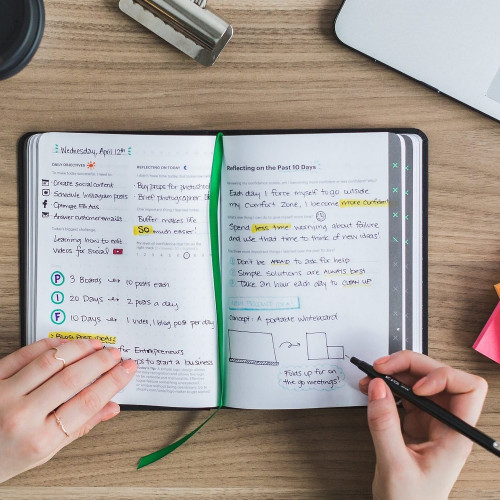 Wednesday, April 12th
DAILY OBJECTIVES
Create social content
Schedule Instagram posts
Optimize FB Ads
Answer customer emails
Learning how to edit
videos for social
P 3 Boards → 10 posts each
I 20 Days → 2 posts a day
F 10 Days → 1 video, 1 blog post per day
for Entrepreneurs
to start a business
REFLECTING ON TODAY
Buy props for photoshoot
Brief photographer
Buffer makes life
SO much easier!
Reflecting on the Past 10 Days
Each day I force myself to go outside
my comfort zone, I become more confident
Spend less time worrying about failure
and use that time to think of new ideas!
1 Don't be AFRAID to ask for help
2 Simple solutions are ALWAYS best
3 Take an hour each day to CLEAN UP
Concept: A portable whiteboard!
Folds up for
on the go meetings!